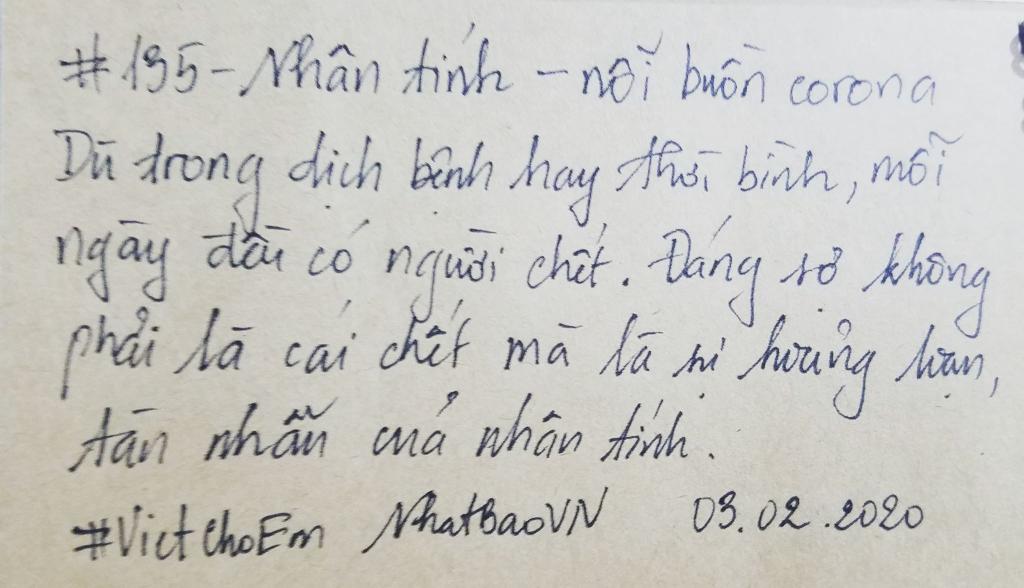 #135 - Nhân tính - nỗi buồn corona
Dù trong dịch bệnh hay thời bình, mỗi
ngày đều có người chết. Đáng sợ không
phải là cái chết mà là sự hoảng loạn,
tàn nhẫn của nhân tính.
#VietChoEm NhatBaoVN 03.02.2020